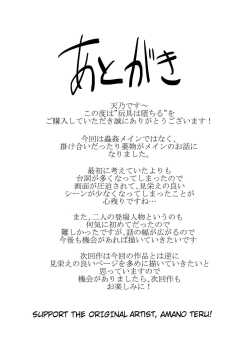 あとがき
天乃です～
この度は"玩具は堕ちる"を
ご購入していただき誠にありがとうございます！
今回は蟲姦メインではなく、
掛け合いだったり薬物がメインのお話に
なりました。
最初に考えていたよりも
台詞が多くなってしまったので
画面が圧迫されて、見栄えの良い
シーンが少なくなってしまったことが
心残りですね…
また、二人の登場人物というのも
何気に初めてだったので
難しかったですが、話の幅が広がるので
今後も機会があれば描いていきたいです
次回作は今回の作品とは逆に
見栄えの良いページを多めに描いていきたいと
思っていますので
機会がありましたら、次回作も
お楽しみに！
SUPPORT THE ORIGINAL ARTIST, AMANO TERU!